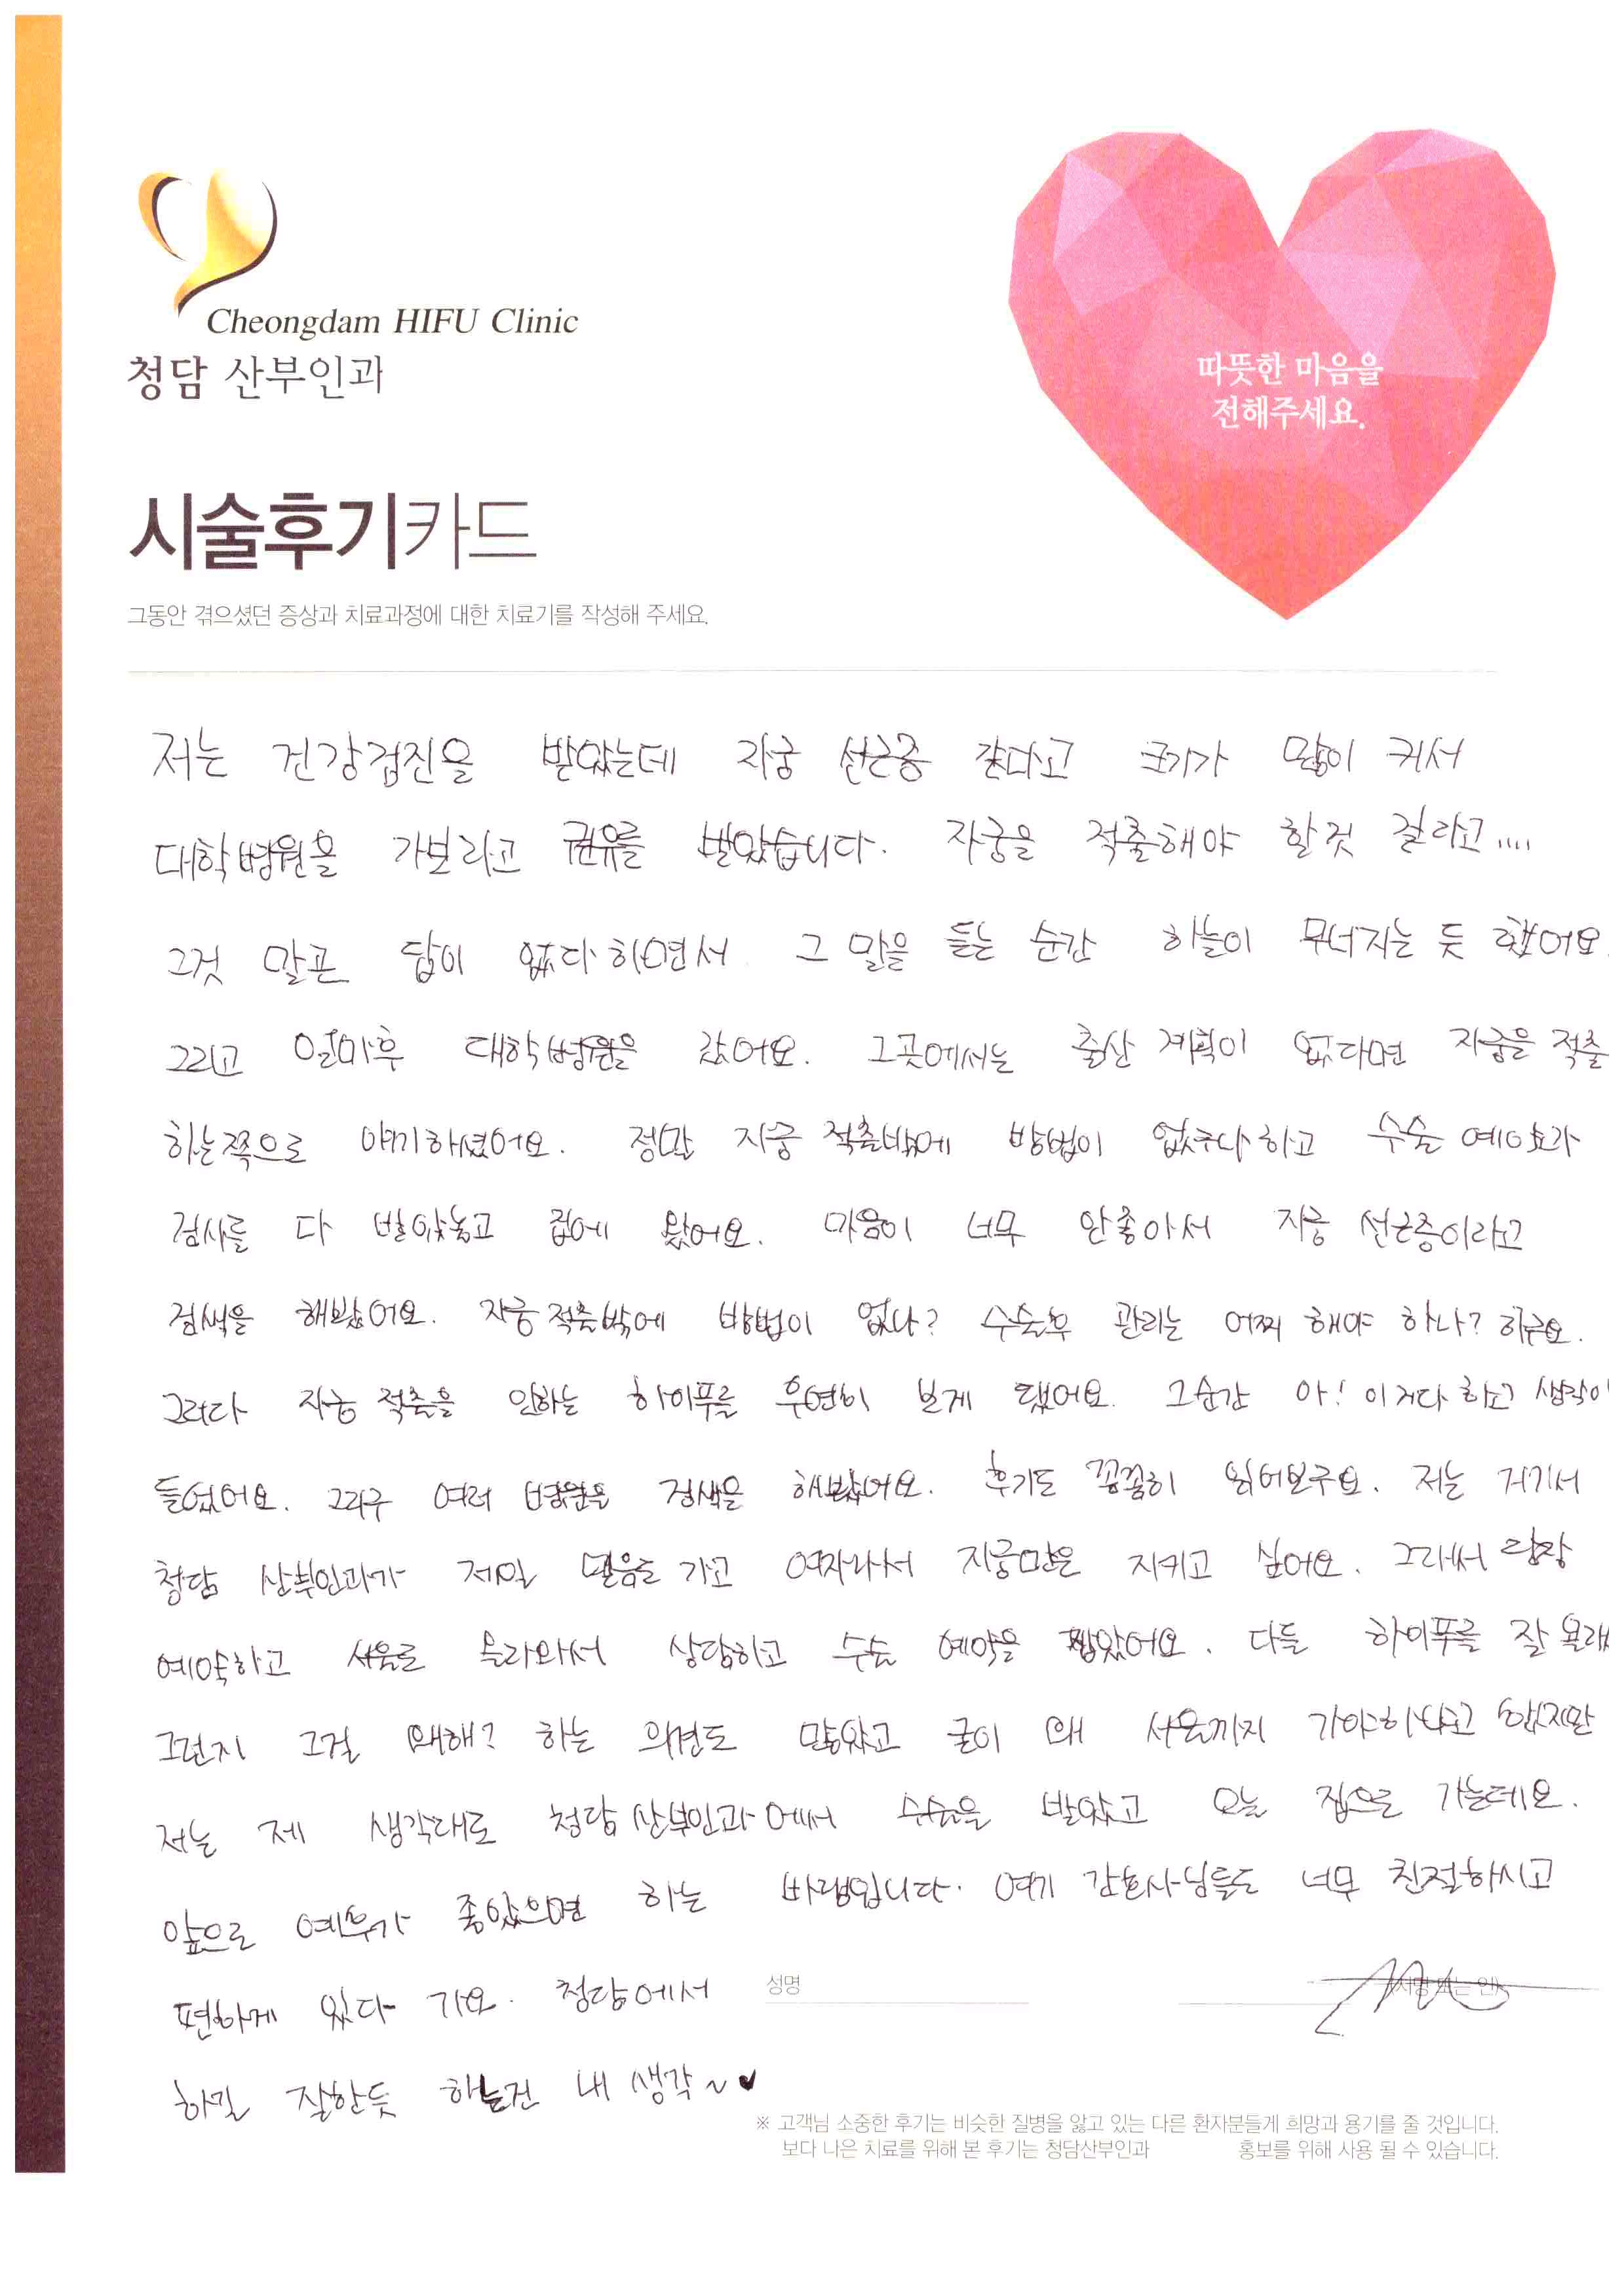 Cheongdam HIFU Clinic
청담 산부인과
따뜻한 마음을
전해주세요.
시술후기카드
그동안 겪으셨던 증상과 치료과정에 대한 치료기를 작성해 주세요.
저는 건강검진을 받았는데 자궁 선근증 같다고 크기가 많이 커서
대학병원을 가보라고 권유를 받았습니다. 자궁을 적출해야 할것 걸라고....
그것 말곤 답이 없다 하면서 그 말을 듣는 순간 하늘이 무너지는 듯 했어요.
그리고 얼마후 대학병원을 갔어요. 그곳에서는 출산 계획이 없다면 자궁을 적출
하는쪽으로 얘기하셨어요. 정말 자궁 적출밖에 방법이 없구나 하고 수술 예약과
검사를 다 받았놓고 집에 왔어요. 마음이 너무 안좋아서 자궁 선근증이라고
검색을 해봤어요. 자궁적출밖에 방법이 없나? 수술후 관리는 어찌 해야 하나? 하구요.
그러다 자궁 적출을 안하는 하이푸를 우연히 보게 됐어요. 그순간 아! 이거다 하고 생각이
들었어요. 그리구 여러 병원을 검색을 해봤어요. 후기도 꼼꼼히 읽어보구요. 저는 거기서
청담 산부인과가 제일 믿음도 가고 여자라서 자궁만은 지키고 싶어요. 그래서 당장
예약하고 서울로 올라와서 상담하고 수술 예약을 잡았어요. 다들 하이푸를 잘 몰래
그런지 그걸 왜해? 하는 의견도 많았고 굳이 왜 서울까지 가야하냐고 했지만
저는 제 생각대로 청담산부인과에서 수술을 받았고 오늘 집으로 가는데요.
앞으로 예후가 좋았으면 하는 바램입니다. 여기 간호사님들도 너무 친절하시고
편하게 있다 가요. 청담에서
성명
(서명 또는 인)
하길 잘한듯 하는건 내 생각~♥
※ 고객님 소중한 후기는 비슷한 질병을 앓고 있는 다른 환자분들게 희망과 용기를 줄 것입니다.
보다 나은 치료를 위해 본 후기는 청담산부인과 홍보를 위해 사용 될 수 있습니다.